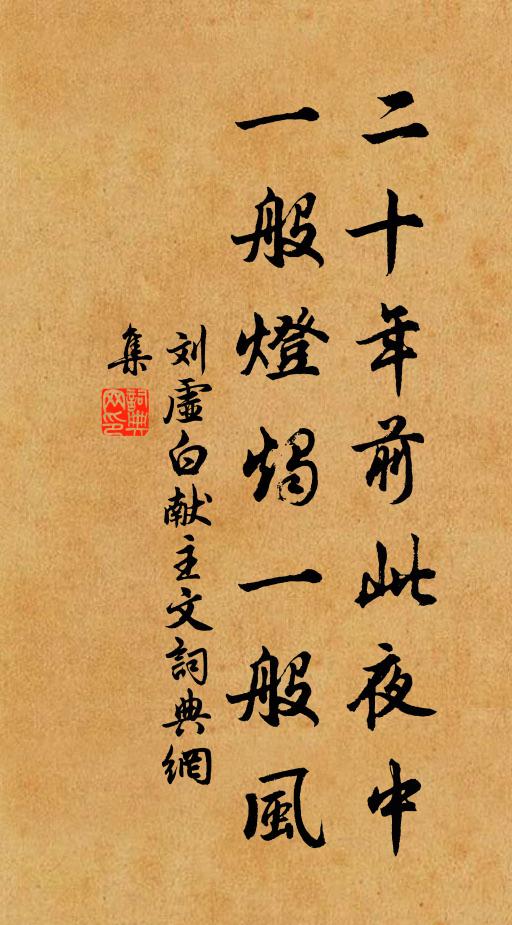 二十年前此夜中
一般燈燭一般風
刘虛白献主文詞典網
集
詞典
网印